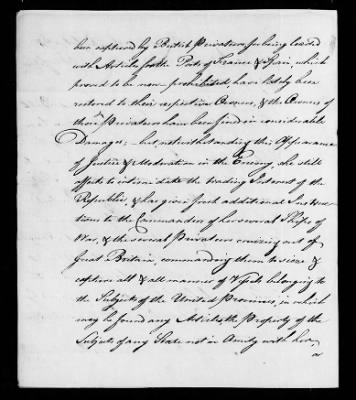 been captured by British Privateers for being loaded
with Articles for the Ports of France & Spain, which
proved to be non-prohibited have lately been
restored to their respective Owners, & the Owners of
those Privateers have been fined in considerable
Damages; — but notwithstanding this Appearance
of Justice & Moderation in the Enemy, she still
affects to intimidate the trading Interest of the
Republic, & has given fresh additional Instruc-
tions to the Commanders of her several Ships of
War, & the several Privateers cruizing out of
Great Britain, commanding them to seize &
capture all & all manner of Vessels belonging to
the Subjects of the United Provinces, in which
may be found any Articles, the Property of the
Subjects of any State not in Amity with her,